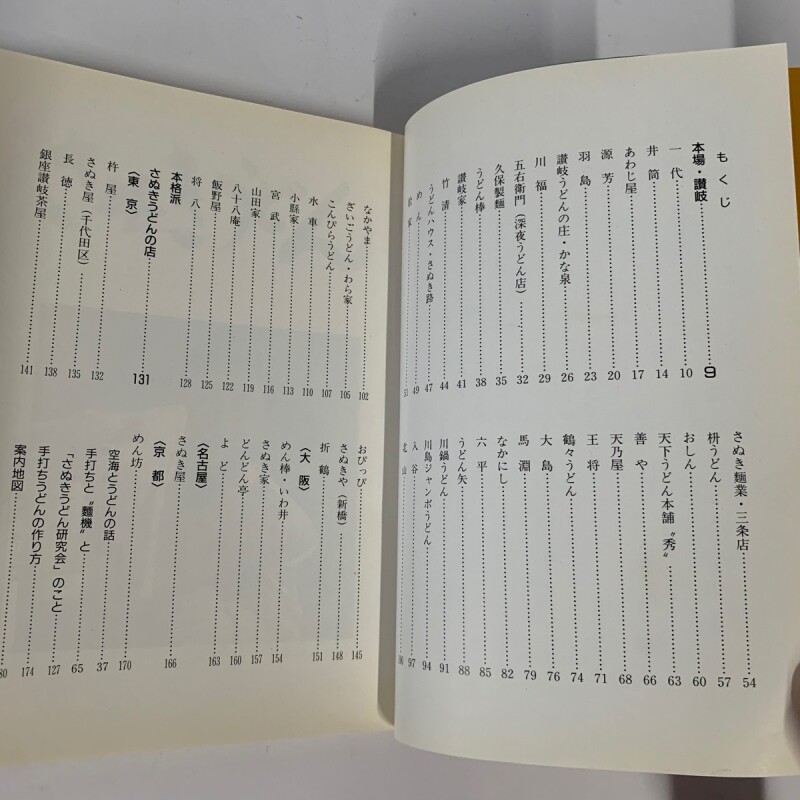 もくじ
本場・讃岐……9
一代……10
井筒……14
あわじ屋……17
源芳……20
羽島……23
讃岐うどんの庄・かな泉……26
川福……29
五右衛門（深夜うどん店）……32
久保製麺……35
うどん棒……38
讃岐家……41
竹清……44
うどんハウス・さぬき路……47
めん……49
さぬき麺業・三条店……54
枡うどん……57
おしん……60
天下うどん本舗〝秀〟……63
善や……66
天乃屋……68
王将……71
鶴々うどん……74
大島……76
馬淵……79
なかにし……82
六平……85
うどん矢……88
川鍋うどん……91
川島ジャンボうどん……94
入谷……97
北山……100
なかやま……102
ざいごうどん・わら家……105
こんぴらうどん……107
水車……110
小縣家……113
宮武……116
山田家……119
八十八庵……122
飯野屋……125
将八……128
本格派
さぬきうどんの店……131
〈東京〉
杵屋……132
さぬき屋（千代田区）……135
長徳……138
銀座讃岐茶屋……141
おぴっぴ……145
さぬきや（新橋）……148
折鶴……151
〈大阪〉
めん棒・いわ井……154
さぬき家……157
どんどん亭……160
よど……163
〈名古屋〉
さぬき屋……166
〈京都〉
めん坊……170
空海とうどんの話……37
手打ちと〝麵機〟と……65
「さぬきうどん研究会」のこと……127
手打ちうどんの作り方……174
案内地図……80